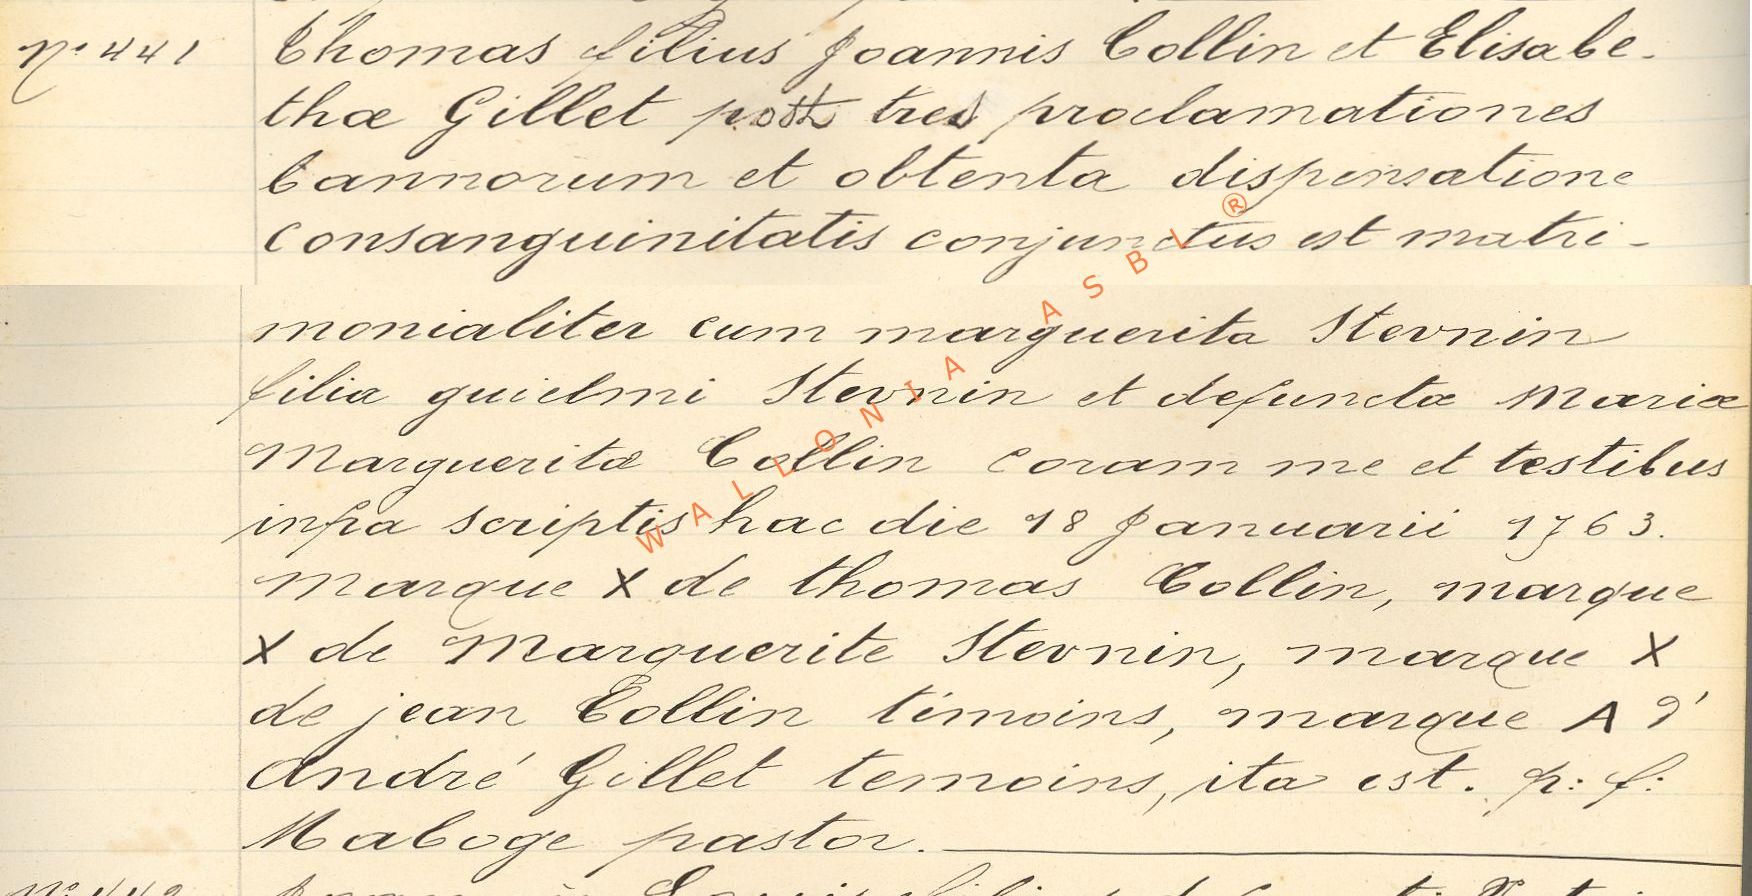 N° 441
Thomas filius Joannis Collin et Elisabe-
thæ Gillet post tres proclamationes
bannorum et obtenta dispensatione
consanguinitatis conjunctus est matri-
monialiter cum marguerita Stevnin
filia guielmi Stevnin et defunctæ Mariæ
Margueritæ Collin coram me et testibus
infra scriptis hac die 18 Januarii 1763.
marque X de thomas Collin, marque
X de Marguerite Stevnin, marque X
de jean Collin témoins, marque A d'
André Gillet temoins, ita est. p: f:
Maboge pastor.
WALLONIA ASBL ®